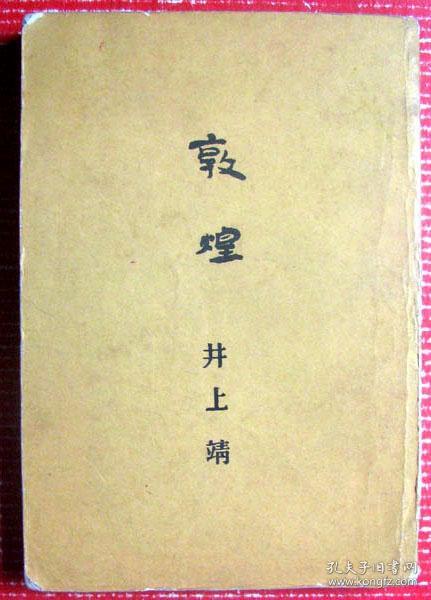 敦煌
井上靖
孔夫子旧书网
www.kongfz.com